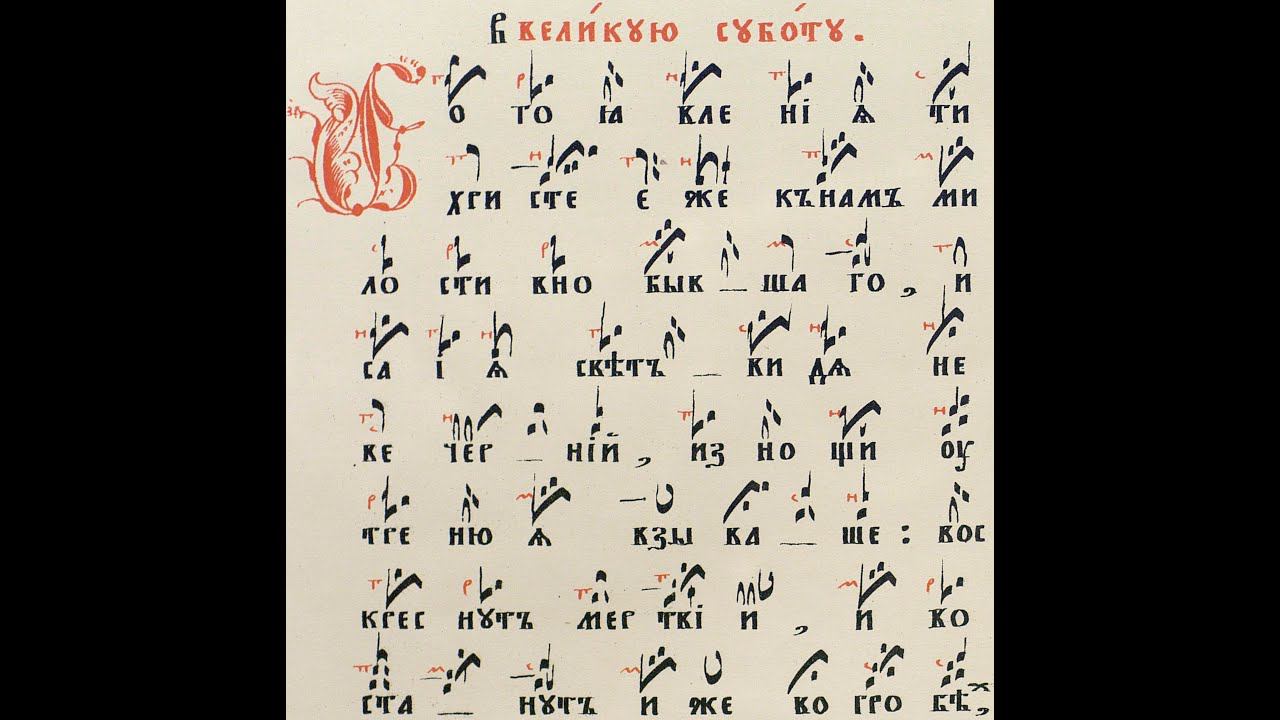 В вели́кую суббо́ту.
Бо го ꙗ вле ні ѧ ти
хри сте є же къ намъ ми
ло сти вно быв — ша го, и
са і ѧ свѣтъ — ви дѧ не
ве чер — ній, из но щи оу
тре ню ѧ взы ва — ше: вос
крес нутъ мер тві и, и во
ста — нутъ и же во гро бѣ х,